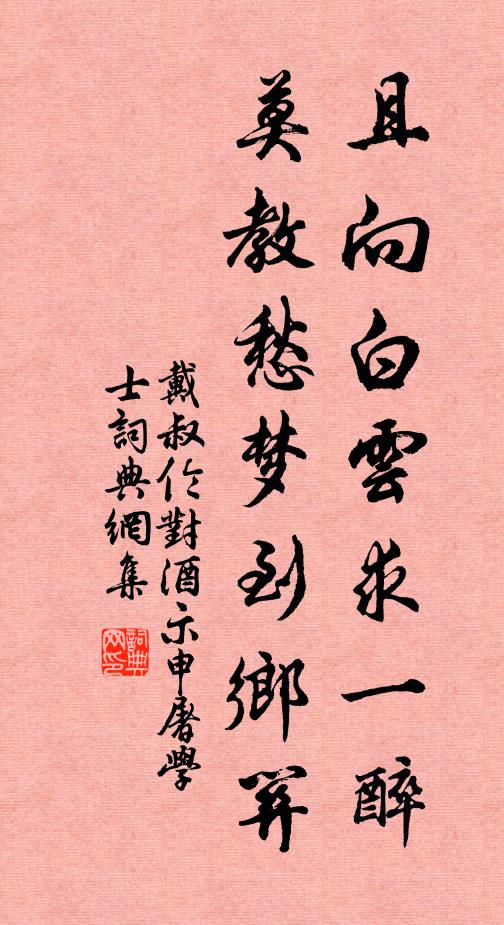 且向白雲求一醉
莫教愁梦到鄉關
戴叔伦對酒示申屠學
士詞典網集
詞典
网印